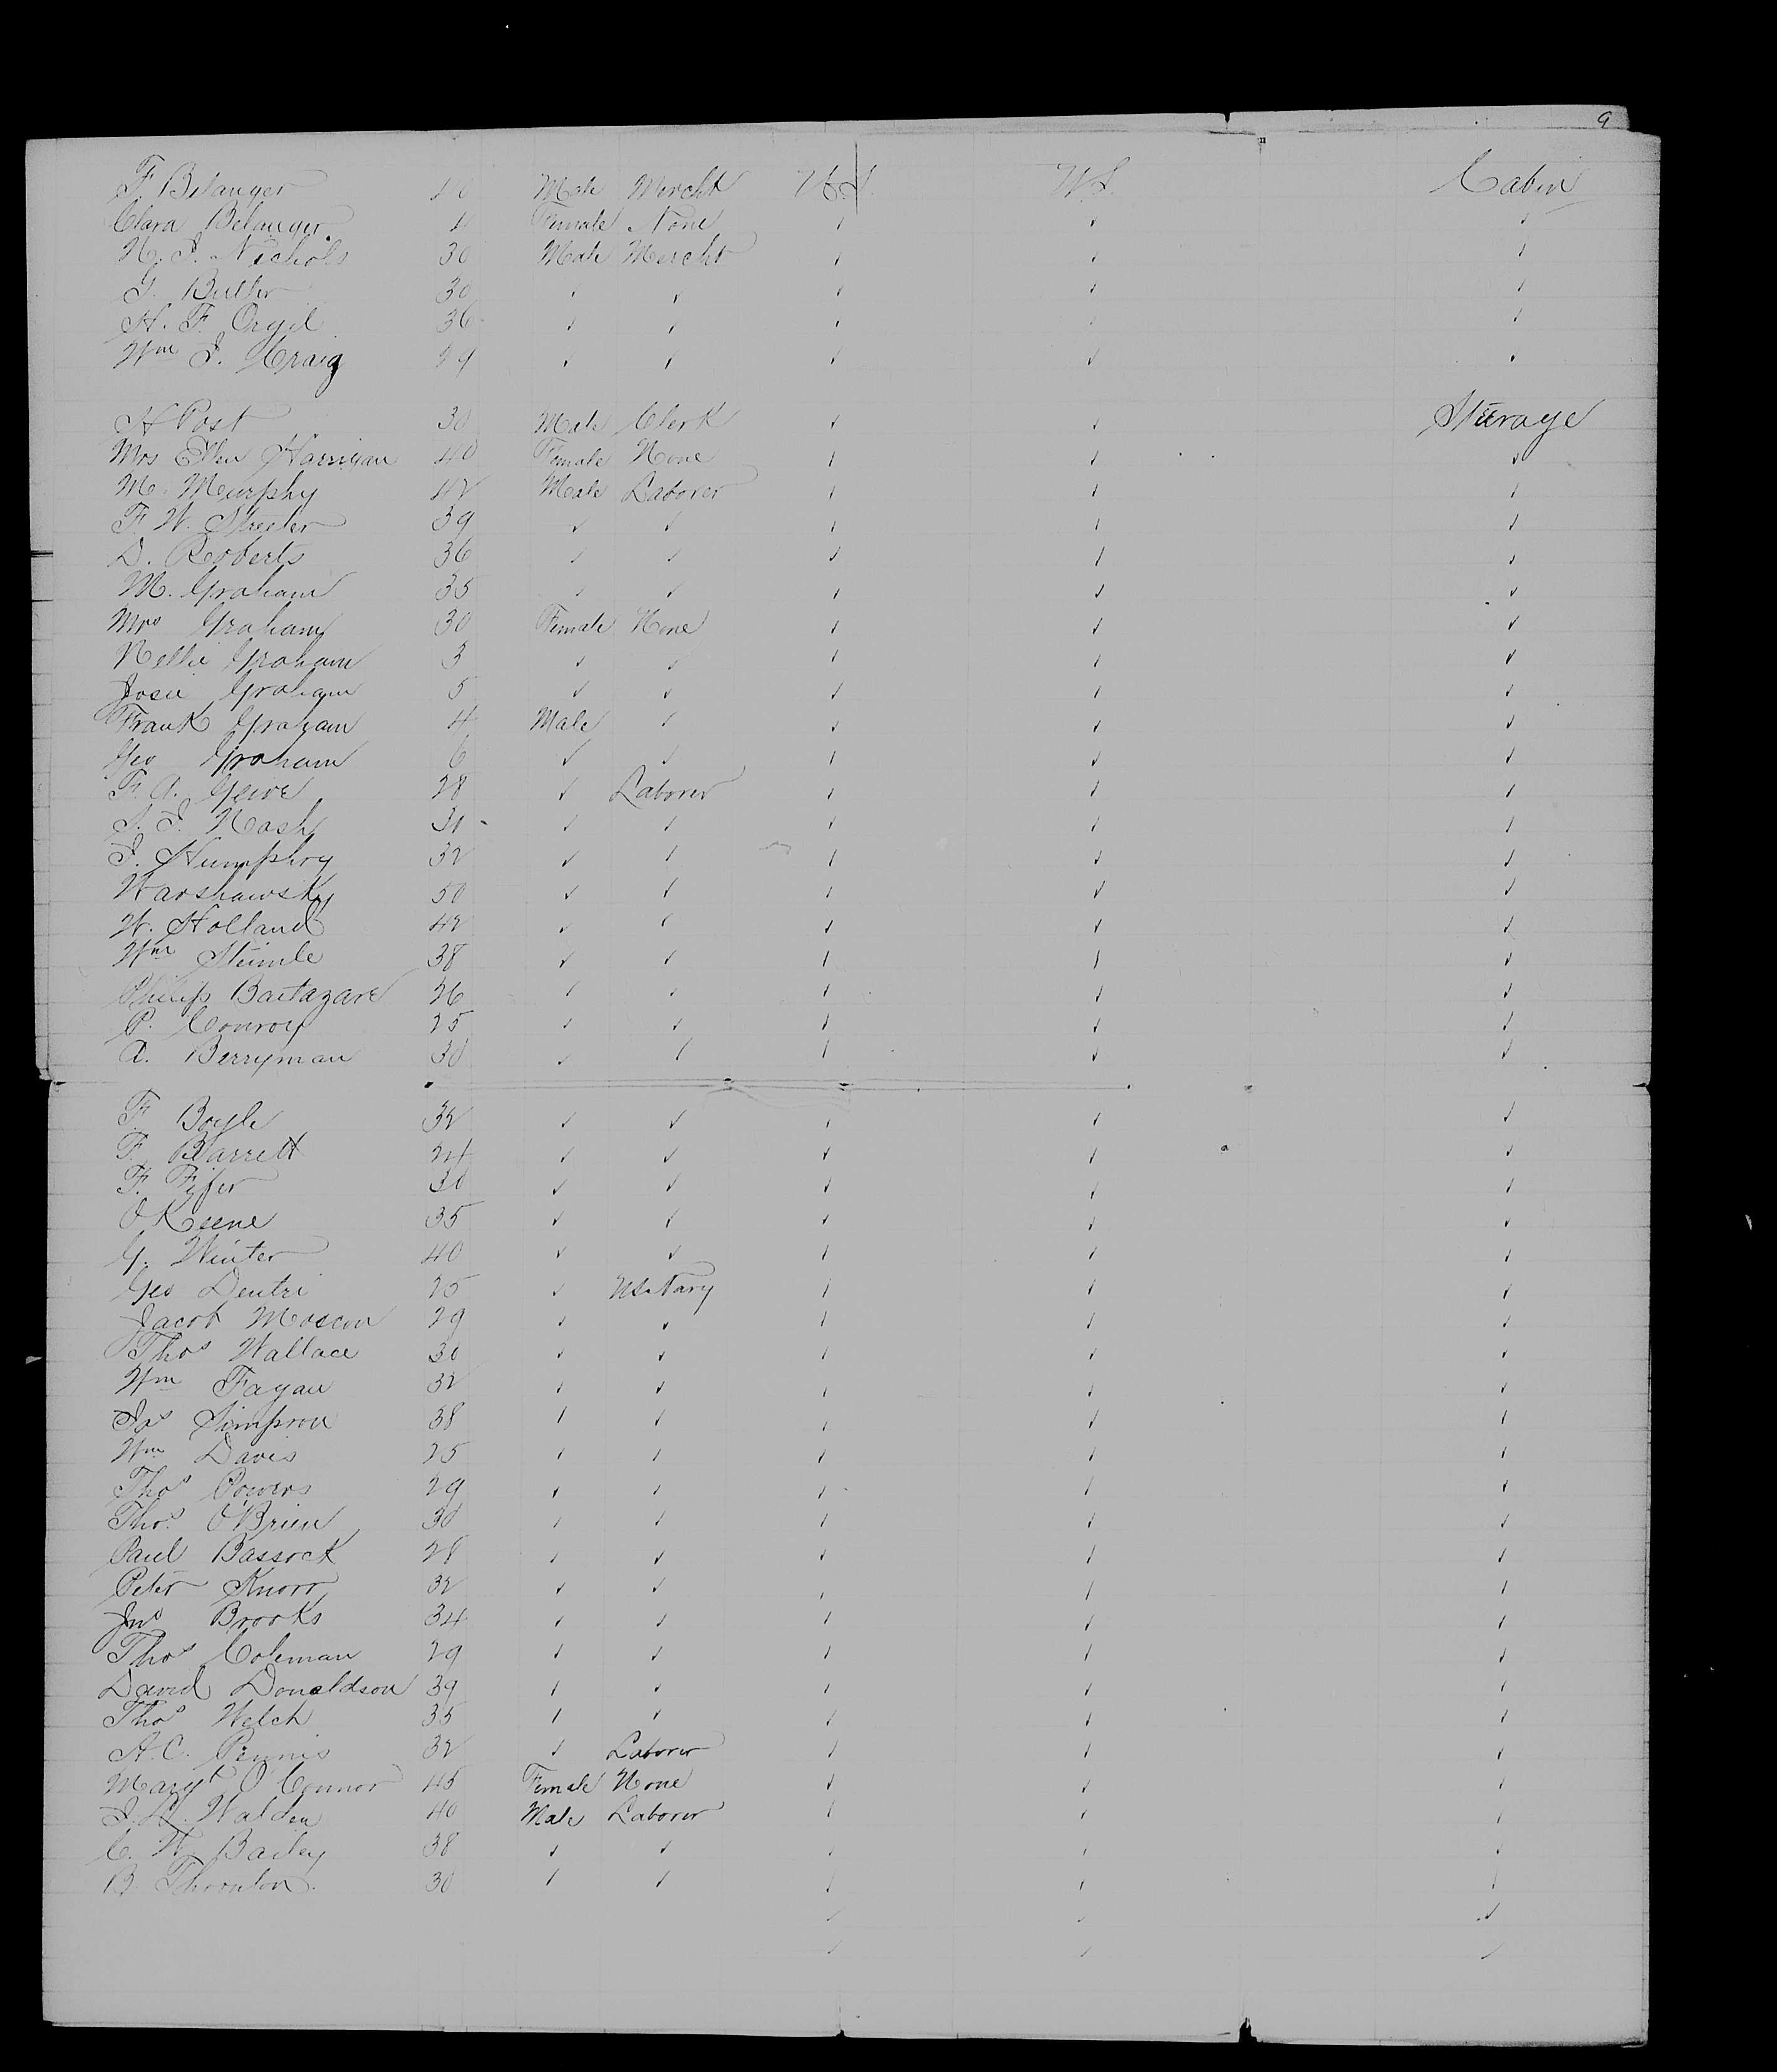 9
F Belanger 40 Male Mercht U.S. U.S. Cabin
Clara Belanger Female None ✓ ✓ ✓
H. J. Nichols 30 Male Mercht ✓ ✓ ✓
G. Butler 30 ✓ ✓ ✓ ✓ ✓
H. F. Orgil 36 ✓ ✓ ✓ ✓ ✓
Wm J. Craig 29 ✓ ✓ ✓ ✓ ✓
H Post 30 Male Clerk ✓ ✓ Steerage
Mrs Ellen Harrigan 40 Female None ✓ ✓ ✓
M. Murphy 42 Male Laborer ✓ ✓ ✓
F. W. Streeter 39 ✓ ✓ ✓ ✓ ✓
D. Roberts 36 ✓ ✓ ✓ ✓ ✓
M. Graham 35 ✓ ✓ ✓ ✓ ✓
Mrs Graham 30 Female None ✓ ✓ ✓
Nellie Graham 3 ✓ ✓ ✓ ✓ ✓
Josie Graham 5 ✓ ✓ ✓ ✓ ✓
Frank Graham 4 Male ✓ ✓ ✓ ✓
Geo Graham 6 ✓ ✓ ✓ ✓ ✓
F. A. 28 ✓ Laborer ✓ ✓ ✓
S. J. Nash 31 ✓ ✓ ✓ ✓ ✓
J. Humphry 32 ✓ ✓ ✓ ✓ ✓
Warshawsky 50 ✓ ✓ ✓ ✓ ✓
W. Holland 42 ✓ ✓ ✓ ✓ ✓
Wm Steimle 38 ✓ ✓ ✓ ✓ ✓
Philip Baltazare 26 ✓ ✓ ✓ ✓ ✓
P. Conroy 25 ✓ ✓ ✓ ✓ ✓
A. Berryman 30 ✓ ✓ ✓ ✓ ✓
F. Boyle 32 ✓ ✓ ✓ ✓ ✓
F. Barrett 24 ✓ ✓ ✓ ✓ ✓
F. Fifer 30 ✓ ✓ ✓ ✓ ✓
O Keene 35 ✓ ✓ ✓ ✓ ✓
G. Winter 40 ✓ ✓ ✓ ✓ ✓
Geo Dentri 25 ✓ US Navy ✓ ✓ ✓
Jacob Moscow 29 ✓ ✓ ✓ ✓ ✓
Thos Wallace 30 ✓ ✓ ✓ ✓ ✓
Wm Fagan 32 ✓ ✓ ✓ ✓ ✓
Jas Simpson 38 ✓ ✓ ✓ ✓ ✓
Wm Davis 25 ✓ ✓ ✓ ✓ ✓
Thos Powers 29 ✓ ✓ ✓ ✓ ✓
Thos. O'Brien 30 ✓ ✓ ✓ ✓ ✓
Paul Bassock 28 ✓ ✓ ✓ ✓ ✓
Peter Knorr 32 ✓ ✓ ✓ ✓ ✓
Jno Brooks 34 ✓ ✓ ✓ ✓ ✓
Thos Coleman 29 ✓ ✓ ✓ ✓ ✓
David Donaldson 39 ✓ ✓ ✓ ✓ ✓
Thos Welch 35 ✓ ✓ ✓ ✓ ✓
A. C. Pennis 32 ✓ Laborer ✓ ✓ ✓
Margt O'Connor 45 Female None ✓ ✓ ✓
J. L. Walden 40 Male Laborer ✓ ✓ ✓
C. W. Bailey 38 ✓ ✓ ✓ ✓ ✓
B. Thornton. 30 ✓ ✓ ✓ ✓ ✓
✓ ✓ ✓
✓ ✓ ✓